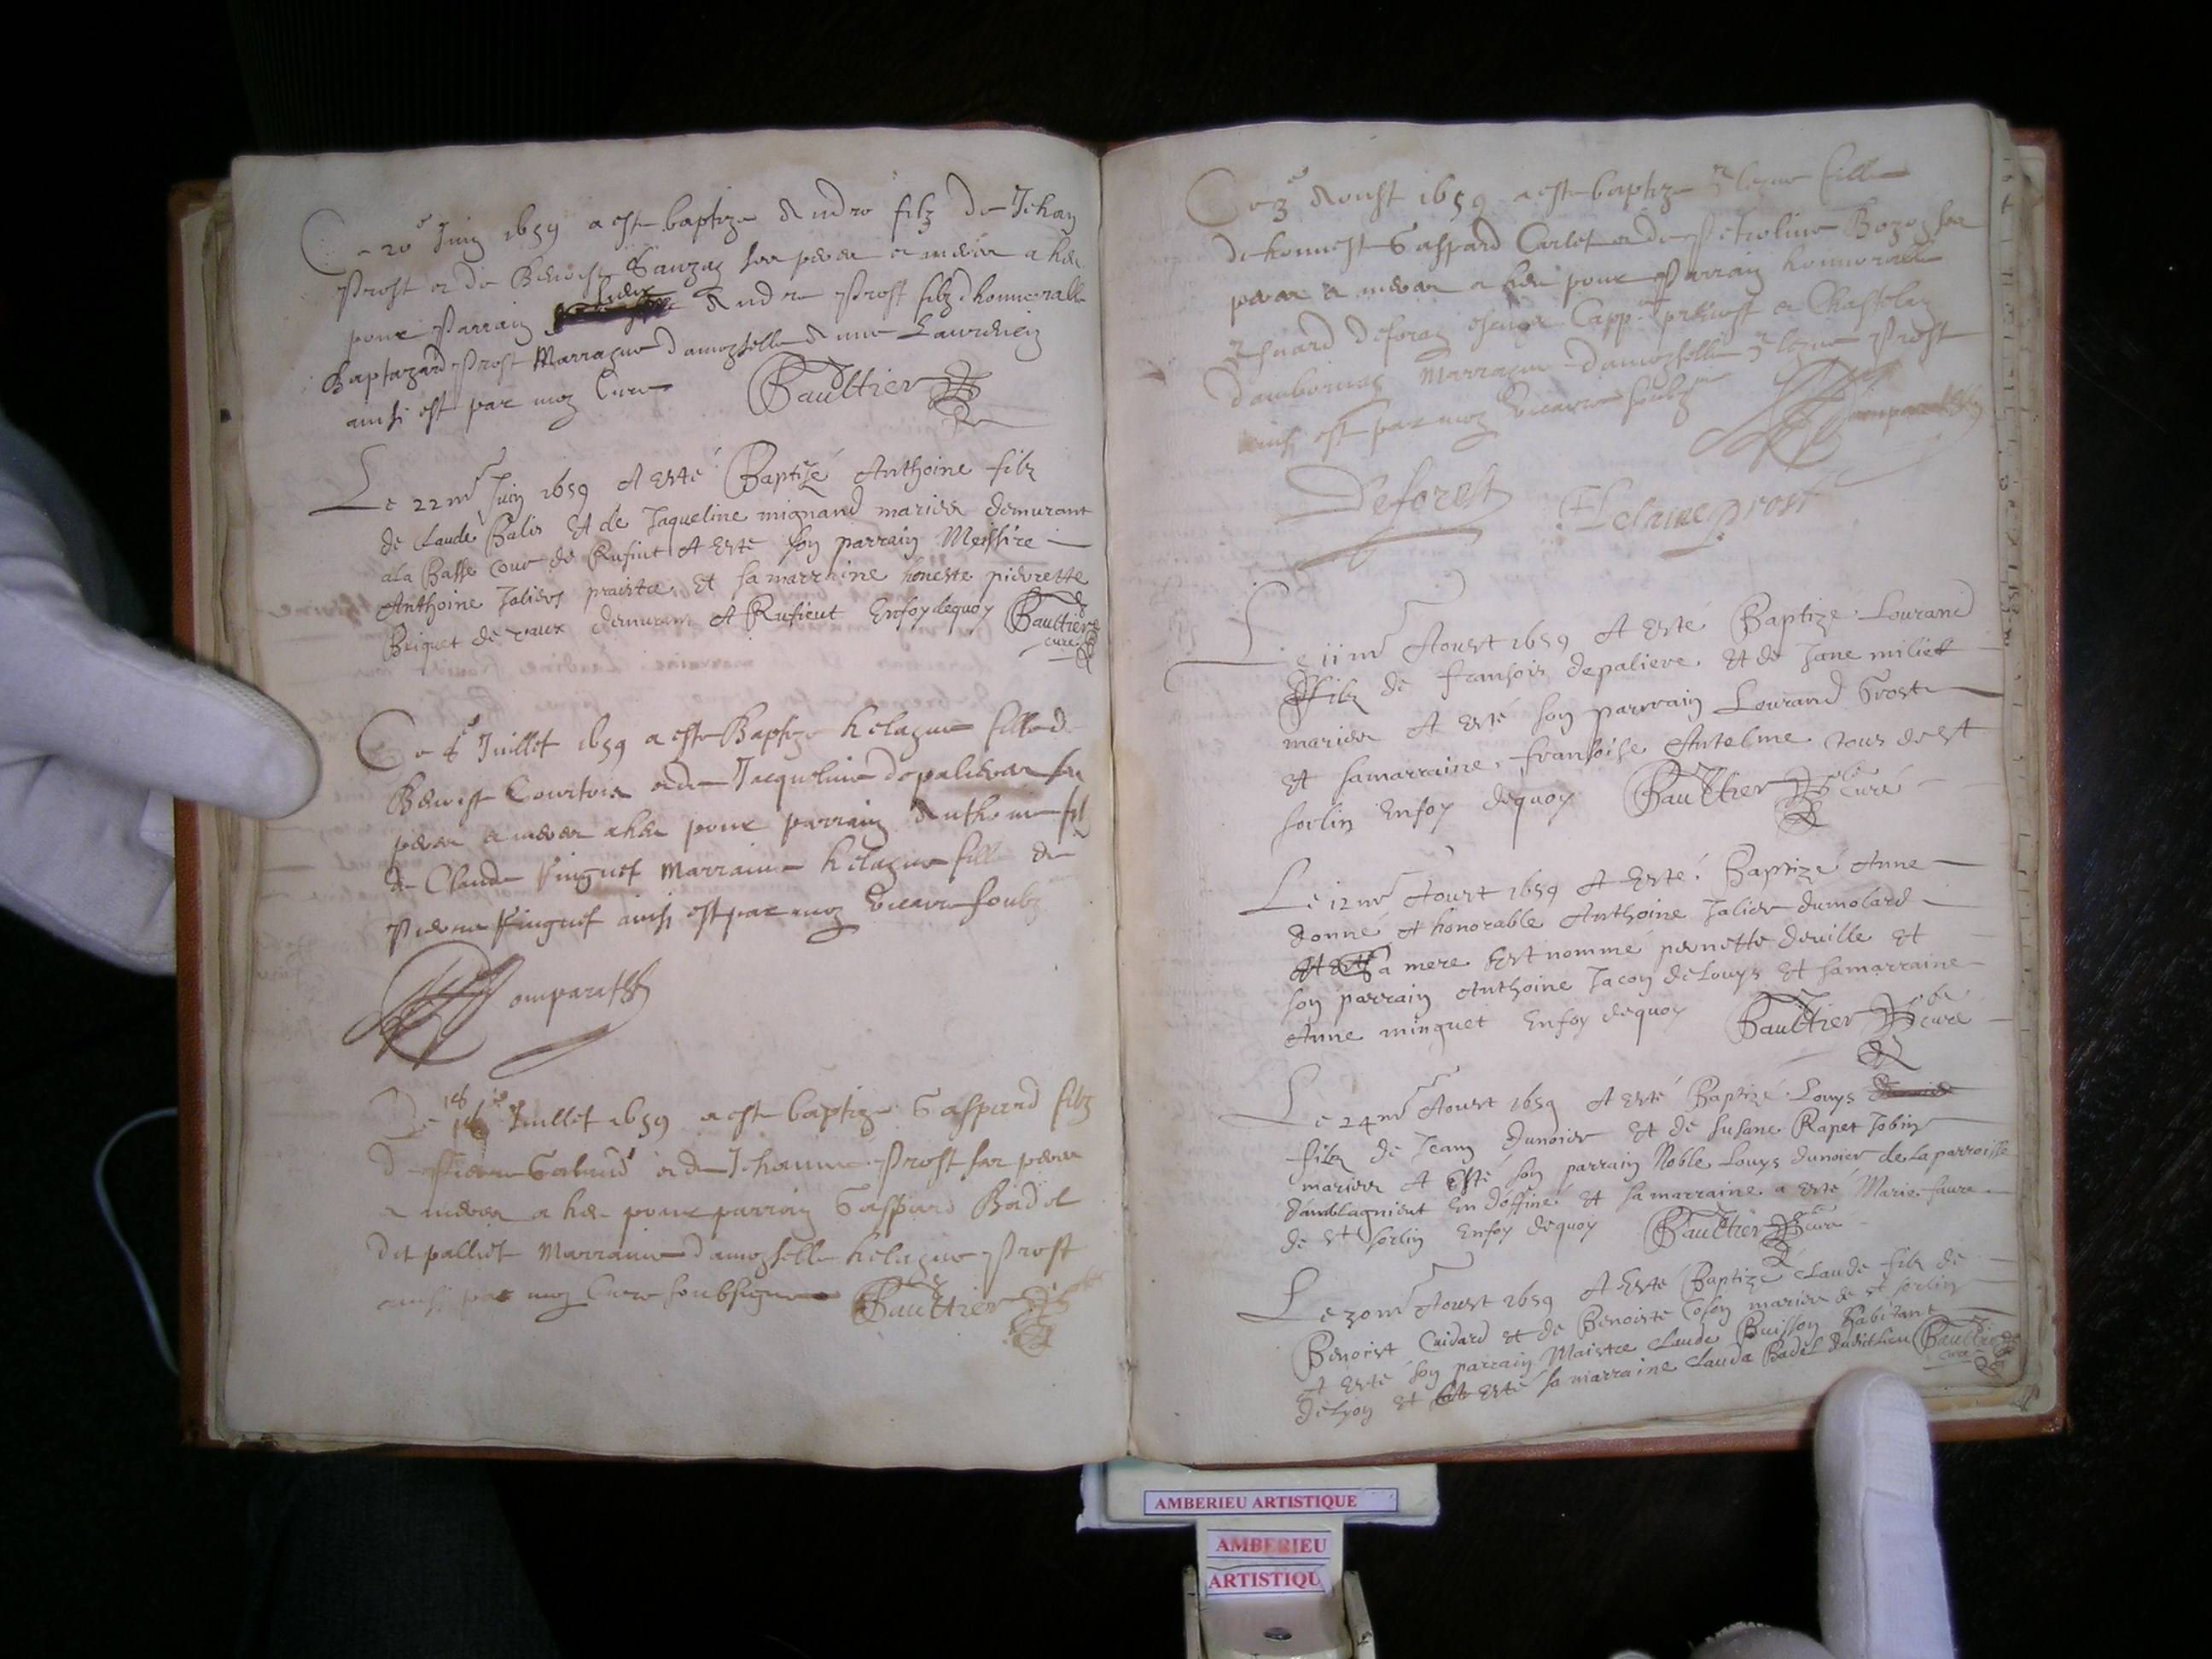 Ce 20e Juin 1659 a este baptize Andre filz de Jehan
Prost et de Benoiste Sauzay ses pere et mere a heu
pour Parrain sieur Andre Prost filz d honnorable
Baptazard Prost Marrayne damoyselle Anne
ainsi est par moy Cure Gaultier
Le 22me Juin 1659 A Esté Baptizé Anthoine filz
de Claude Balis Et de Jaqueline mignard mariés demurant
ala Basse cour de Rufiut A Esté son parrain Messire
Anthoine Jalier praistre Et sa marraine honeste pierrette
Briquet de vaux demurant A Rufieut Enfoydequoy Gaultier
curé
Ce 6e Juillet 1659 a este Baptize helayne fille de
Benoist Courtois et de Jacqueline de paliere ses
pere et mere a heu pour parrain Anthoine fil
de Claude Minguet Marraine helayne fille de
Pierre Minguet ainsi est par moy vicaire soubz
Comparat
Le 18
16e Juillet 1659 a este baptize Gaspard filz
d estienne et de Jehanne Prost ses pere
et mere a heu pour parrain Gaspard Badel
dit palliet Marraine damoyselle helayne Prost
ainsi par moy Cure soubsigne Gaultier
Ce 3e Aoust 1659 a este baptize Eleyne fille
de honneste Gaspard Carlet et de Petroline ses
pere et mere a heu pour Parrain honnorable
deforay Capp.ne prevost et Chastelain
d Marrayne damoyselle Eleyne Prost
ainsi est par moy vicaire soubzne Comparat
Deforest Helaine prost
Le 11me Aoust 1659 A Esté Baptizé Lourand
filz de fransois depaliere Et de Jane miliet
mariés A Esté son parrain Lourand Grost
Et samarraine fransoise Antelme tous de st
sorlin Enfoy dequoy Gaultier curé
Le 12me Aoust 1659 A Esté Baptizé Anne
donné A honorable Anthoine Jalier dumolard
sa mere Est nommé pernette deville Et
son parrain Anthoine Jacon de Louys Et samarraine
Anne minguet Enfoy dequoy Gaultier curé
Le 24me Aoust 1659 A Esté Baptizé Louys
filz de Jean dunoier Et de susane Rapet Jobin
mariés A Esté son parrain Noble Louys dunoier de la parroisse
damblagnieut En doffiné Et sa marraine a Esté Marie faure
de st sorlin Enfoy dequoy Gaultier curé
Le 30me Aoust 1659 A Esté Baptizé Claude filz de
Benoist Cuidard et de Benoiste Coson mariés de st sorlin
A Esté son parrain Maistre Claude Buisson habitant
de lyon Et Esté sa marraine Clauda Badel dudict lieu Gaultier
curé
AMBERIEU ARTISTIQUE
AMBERIEU
ARTISTIQU